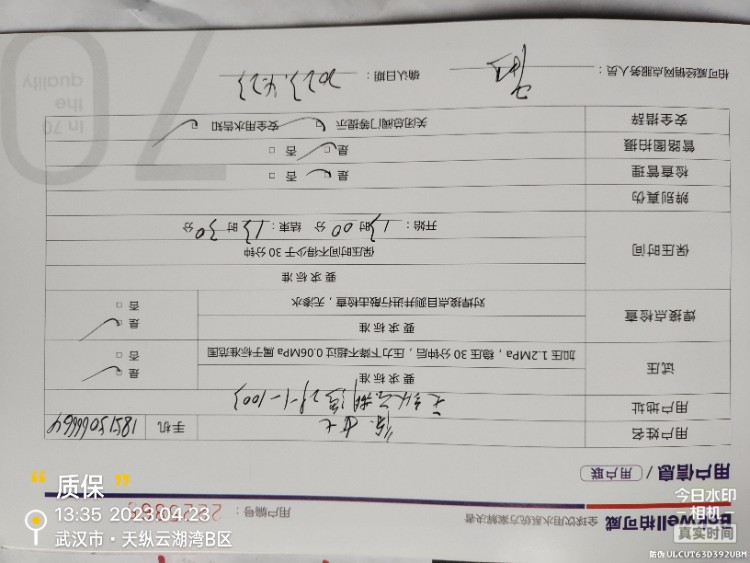 Bekwell柏可威 全球饮用水系统方案解决者
用户编号：
用户信息 / 用户联
用户姓名
手机
用户地址
试压
要求标准
加压 1.2MPa，稳压 30 分钟后，压力下降不超过 0.06MPa 属于标准范围
是 否
焊接点检查
要求标准
对焊接点目测并进行敲击检查，无渗水
是 否
保压时间
要求标准
保压时间不得少于 30 分钟
开始：13 时 00 分 结束：13 时 30 分
辨别真伪
检查管理
是 否
管路图拍摄
是 否
安全措辞
关闭总阀门等提示 安全用水告知
柏可威经销网点服务人员：
确认日期：2023.4.23
in 70
the
quality
70
“质保”
13:35 2023.04.23
武汉市·天纵云湖湾B区
今日水印
相机
真实时间
防伪ULCUT63D392UBM